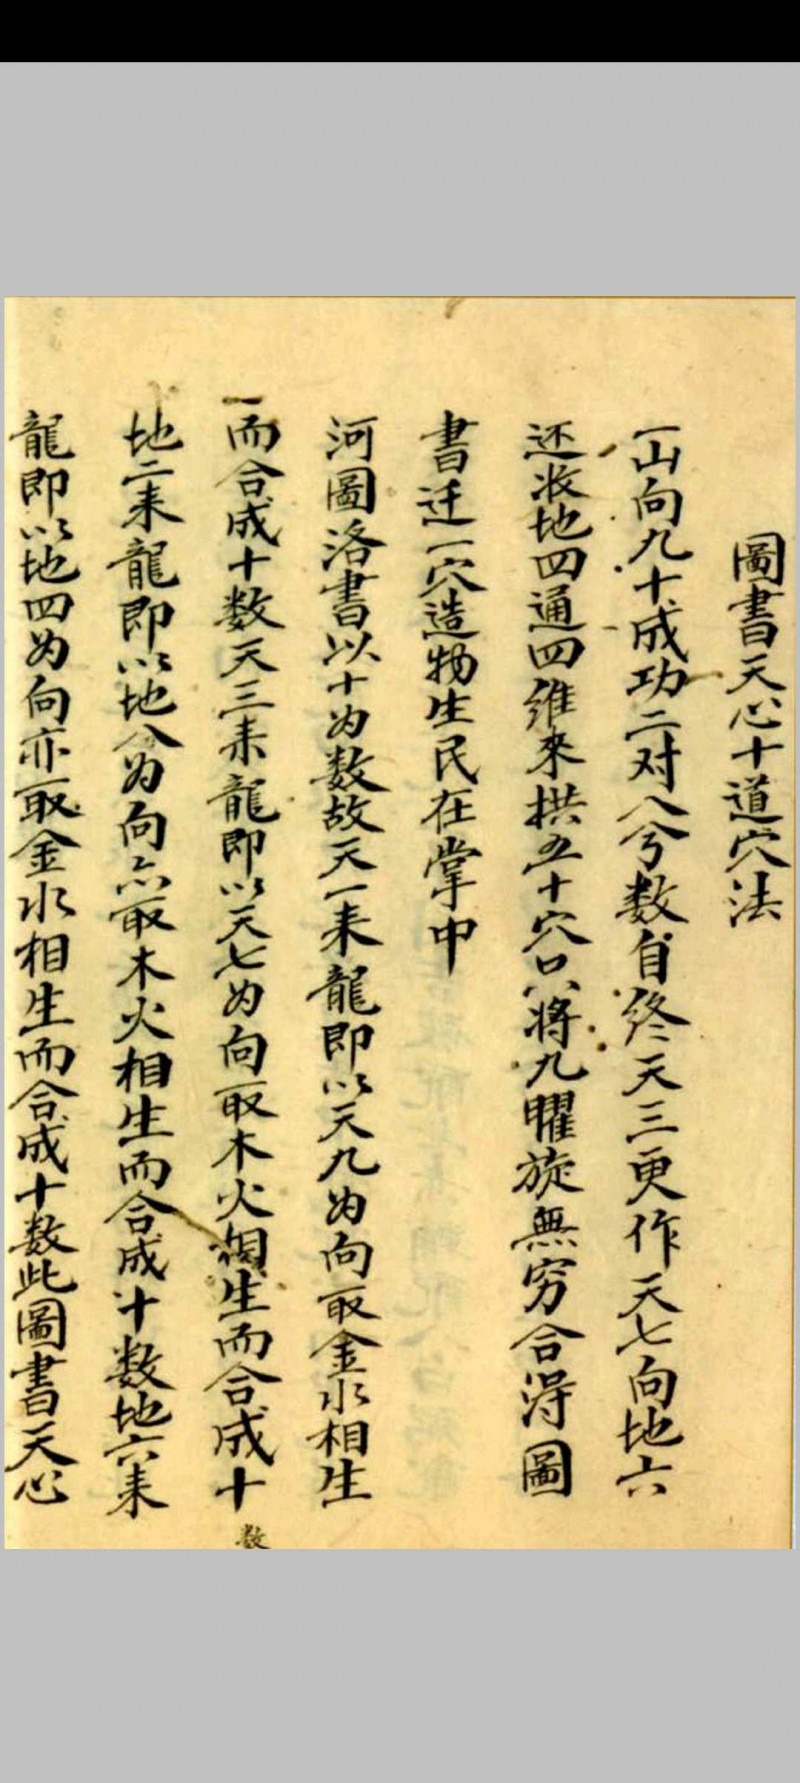 圖書天心十道穴法
一山向九十成功二对八兮数自终天三更作天七向地六
还收地四通四維來拱五十穴只将九曜旋無穷合淂圖
書迁一穴造物生民在掌中
河圖洛書以十为数故天一来龍即以天九为向取金水相生
而合成十数天三来龍即以天七为向取木火相生而合成十
数
地二来龍即以地八为向亦取木火相生而合成十数地六来
龍即以地四为向亦取金水相生而合成十数此圖書天心